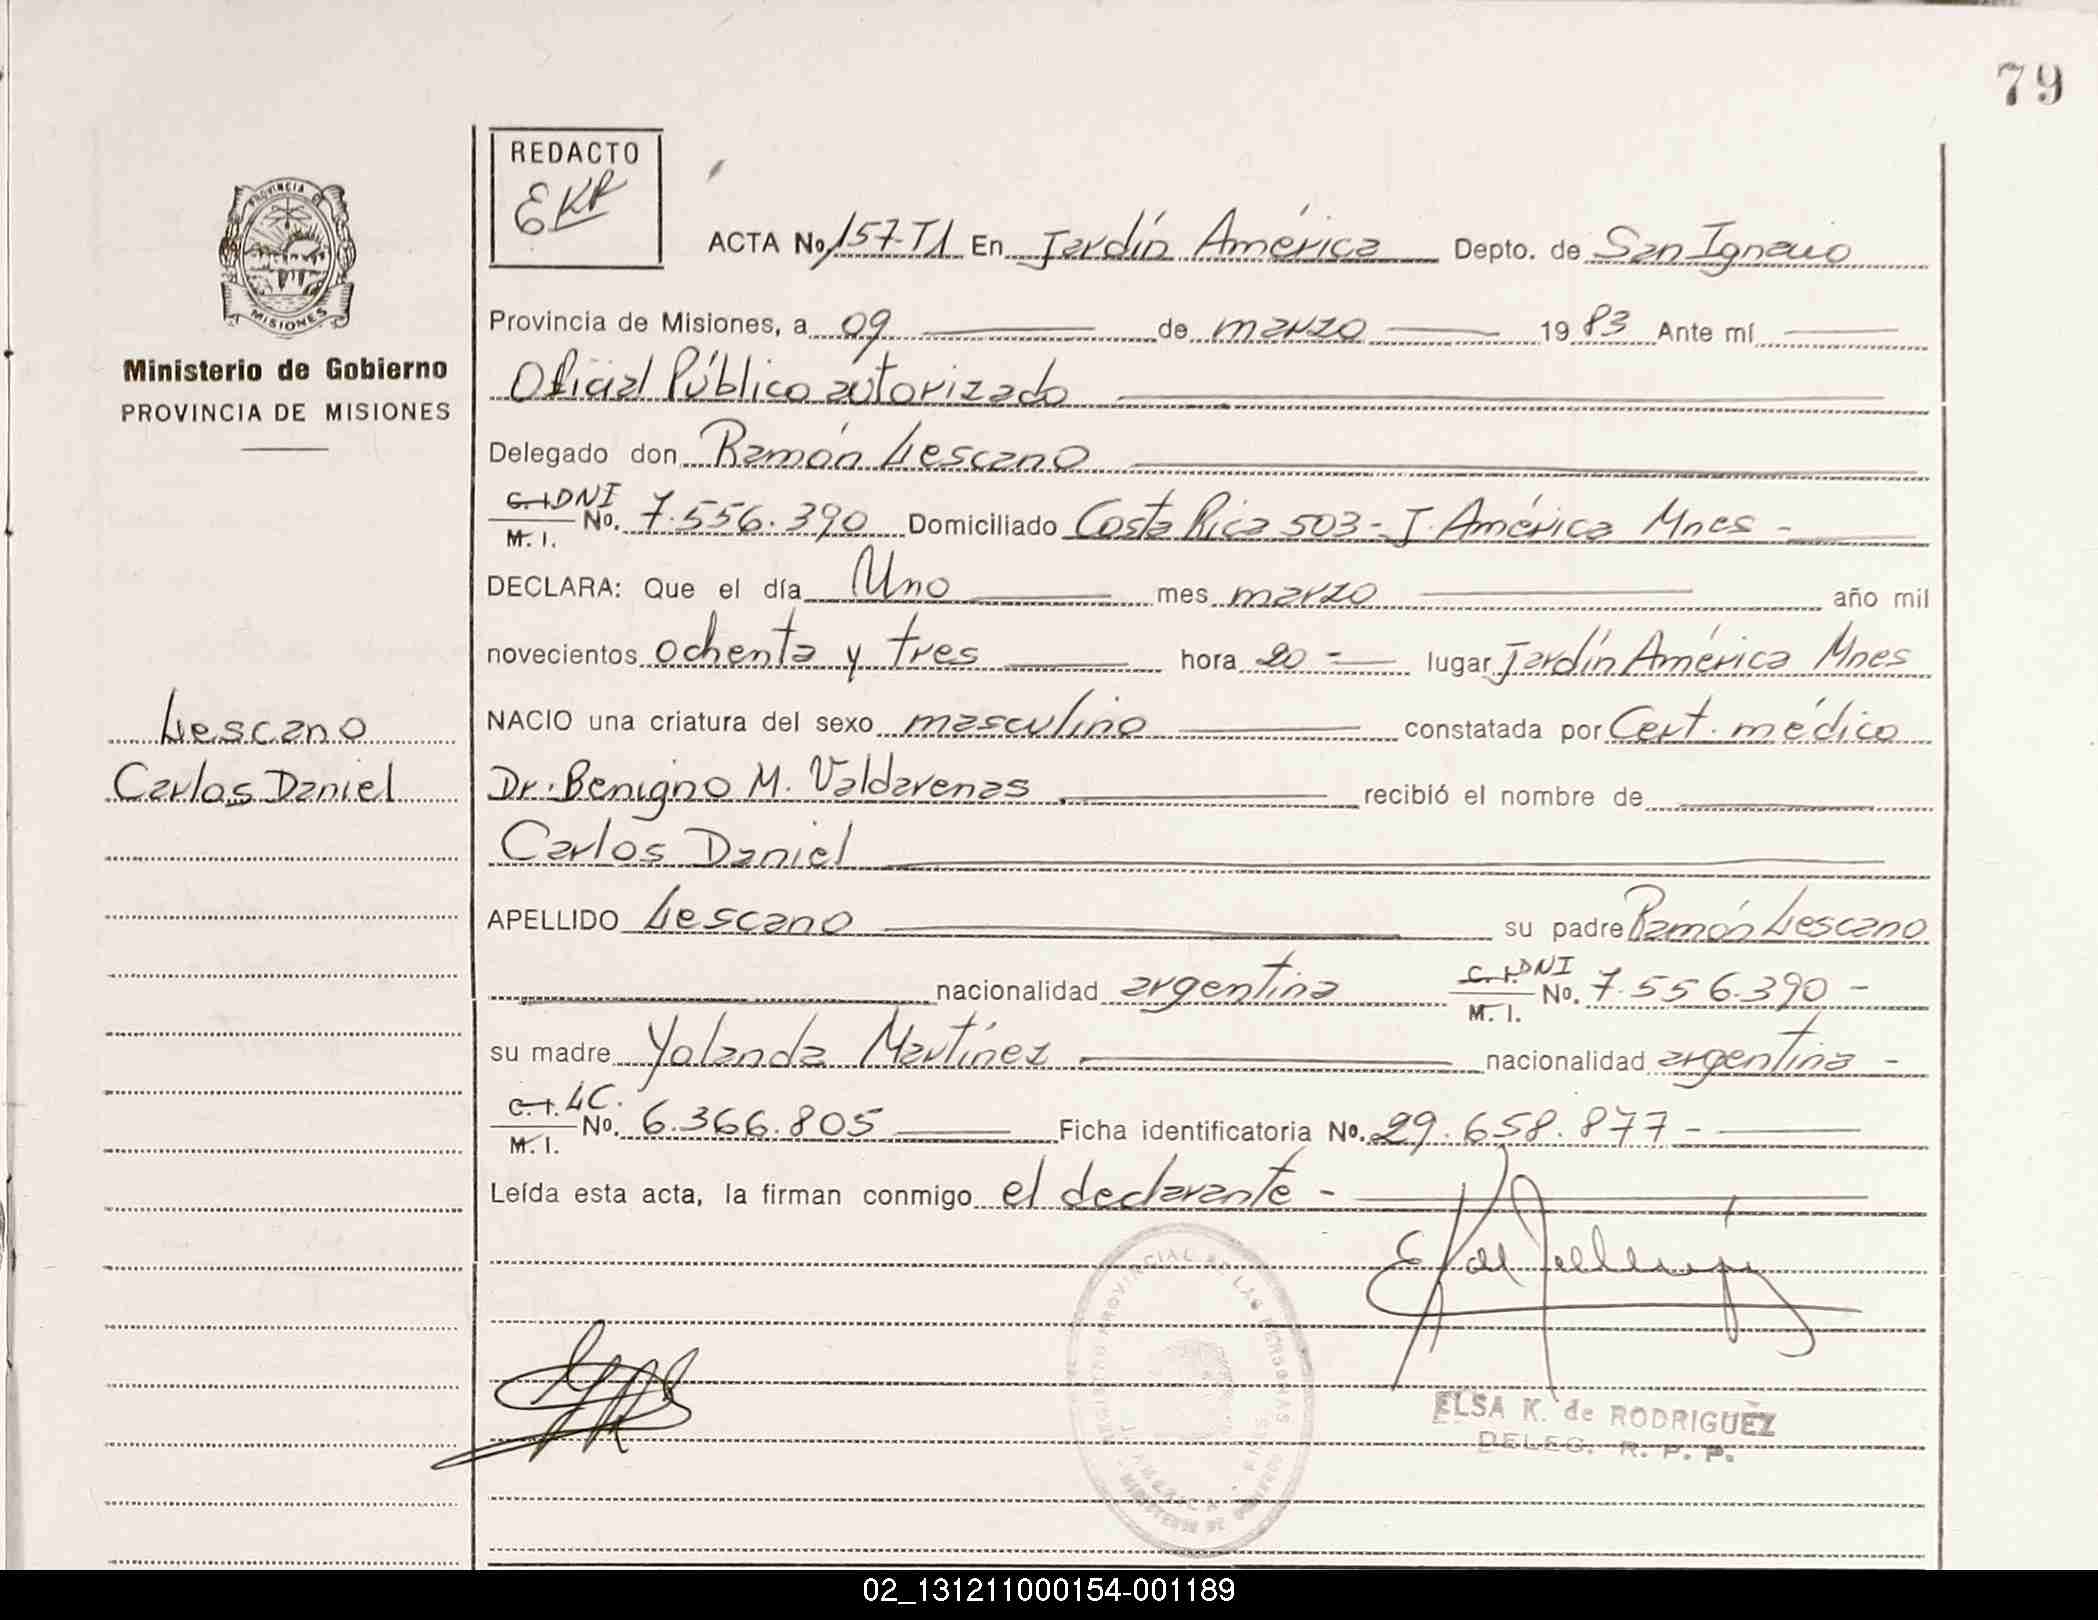 79
REDACTO
EKR
ACTA No. 157-T1 En Jardín América Depto. de San Ignacio
Provincia de Misiones, a 09 de marzo 1983 Ante mí
Oficial Público autorizado
Delegado don Ramón Lescano
C.I. DNI M. I. No. 7.556.390 Domiciliado Costa Rica 503 - J. América Mnes -
DECLARA: Que el día Uno mes marzo año mil
novecientos ochenta y tres hora 20 - lugar Jardín América Mnes
NACIO una criatura del sexo masculino constatada por Cert. médico
Dr. Benigno M. Valdarenas recibió el nombre de
Carlos Daniel
APELLIDO Lescano su padre Ramón Lescano
nacionalidad argentina C.I. DNI M. I. No. 7.556.390 -
su madre Yolanda Martínez nacionalidad argentina -
C.I. LC. M. I. No. 6.366.805 Ficha identificatoria No. 29.658.877 -
Leída esta acta, la firman conmigo el declarante -
PROVINCIA DE
MISIONES
Ministerio de Gobierno
PROVINCIA DE MISIONES
Lescano
Carlos Daniel
REGISTRO PROVINCIAL DE LAS PERSONAS
MINISTERIO DE GOBIERNO
ELSA K. de RODRIGUEZ
DELEG. R. P. P.
02_131211000154-001189